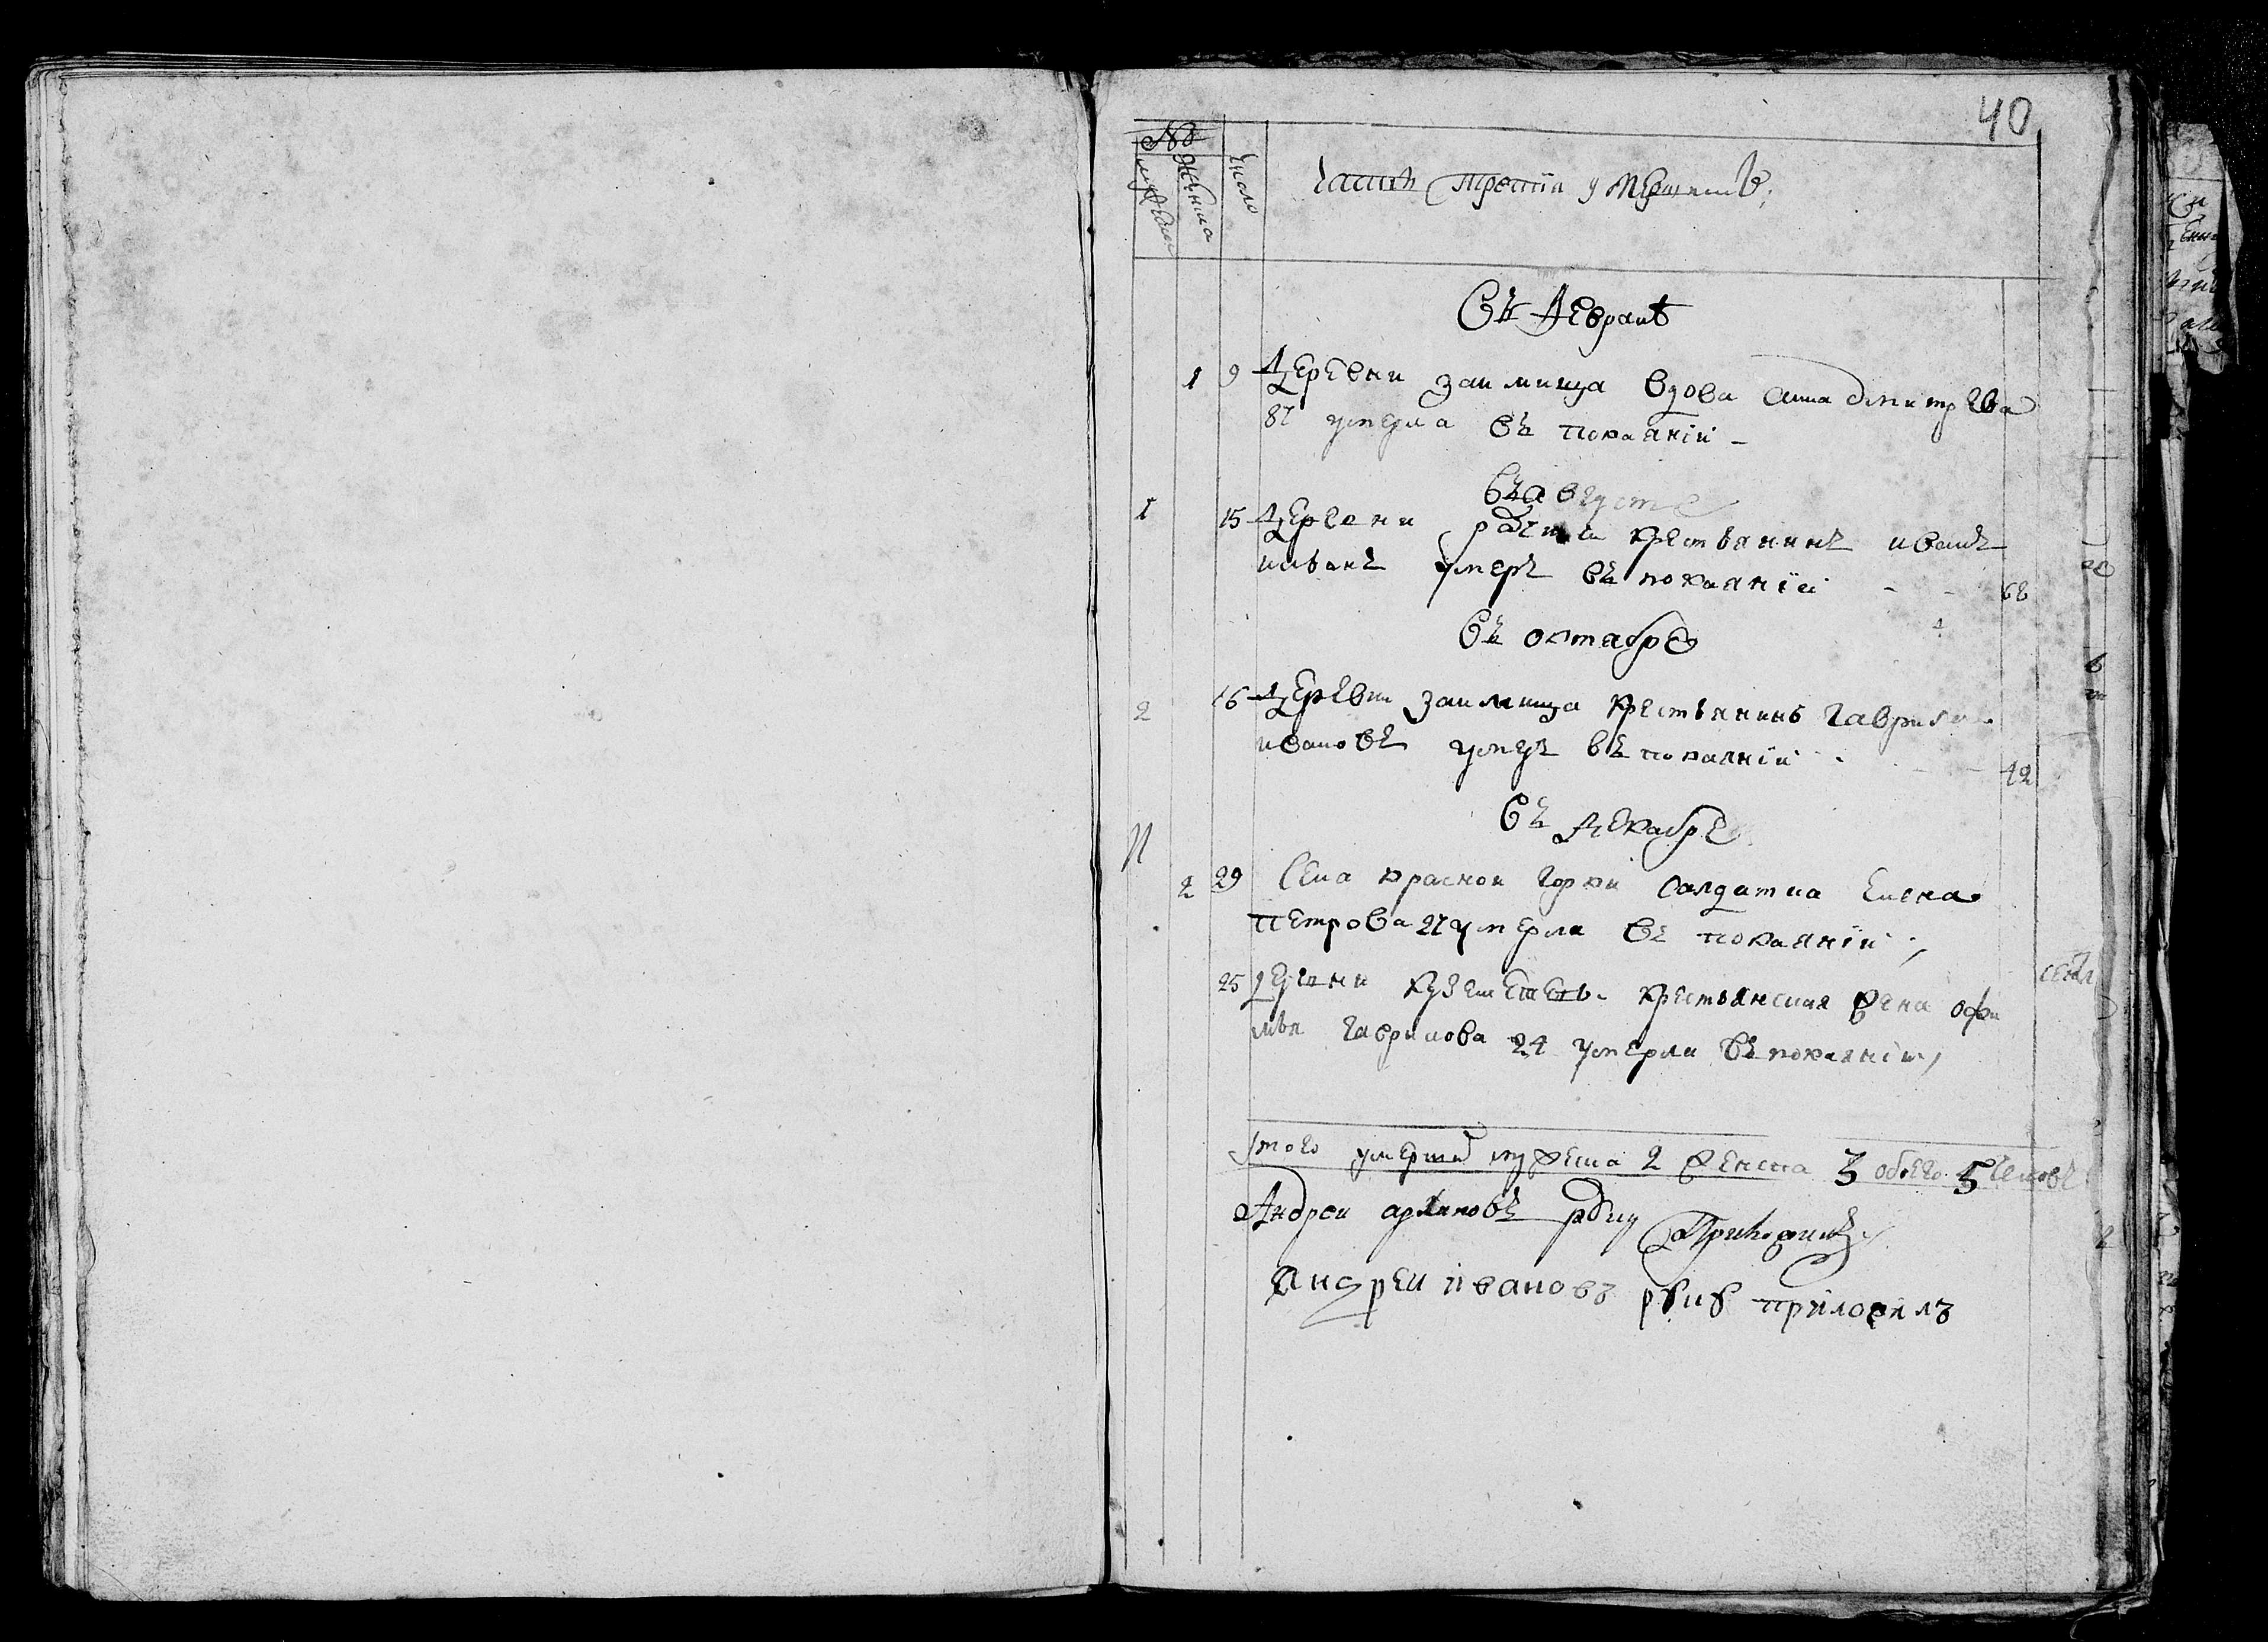 40
№
мужеска
женска
число
часть третiя умершихъ
Въ Февралѣ
1 9 Деревни заимища вдова анна дмитрева
87 умерла въ покаянiи
Въ августе
1 15 Деревни крестьянинъ иванъ
умеръ въ покаянiи 68
Въ октябре
2 16 Деревни заимища крестьянинъ гаврила
ивановъ умеръ въ покаянiи 42
Въ декабре
2 29 Села красной горки салдатка елена
петрова 27 умерла въ покаянiи
25 деревни крестьянская жена офи
мья гаврилова 24 умерла въ покаянiи
Итого умерши мужеска 2 женска 3 обоего 5 человъ
Андреи архиповъ руку приложилъ
Андреи iвановъ рꙋкꙋ приложилъ